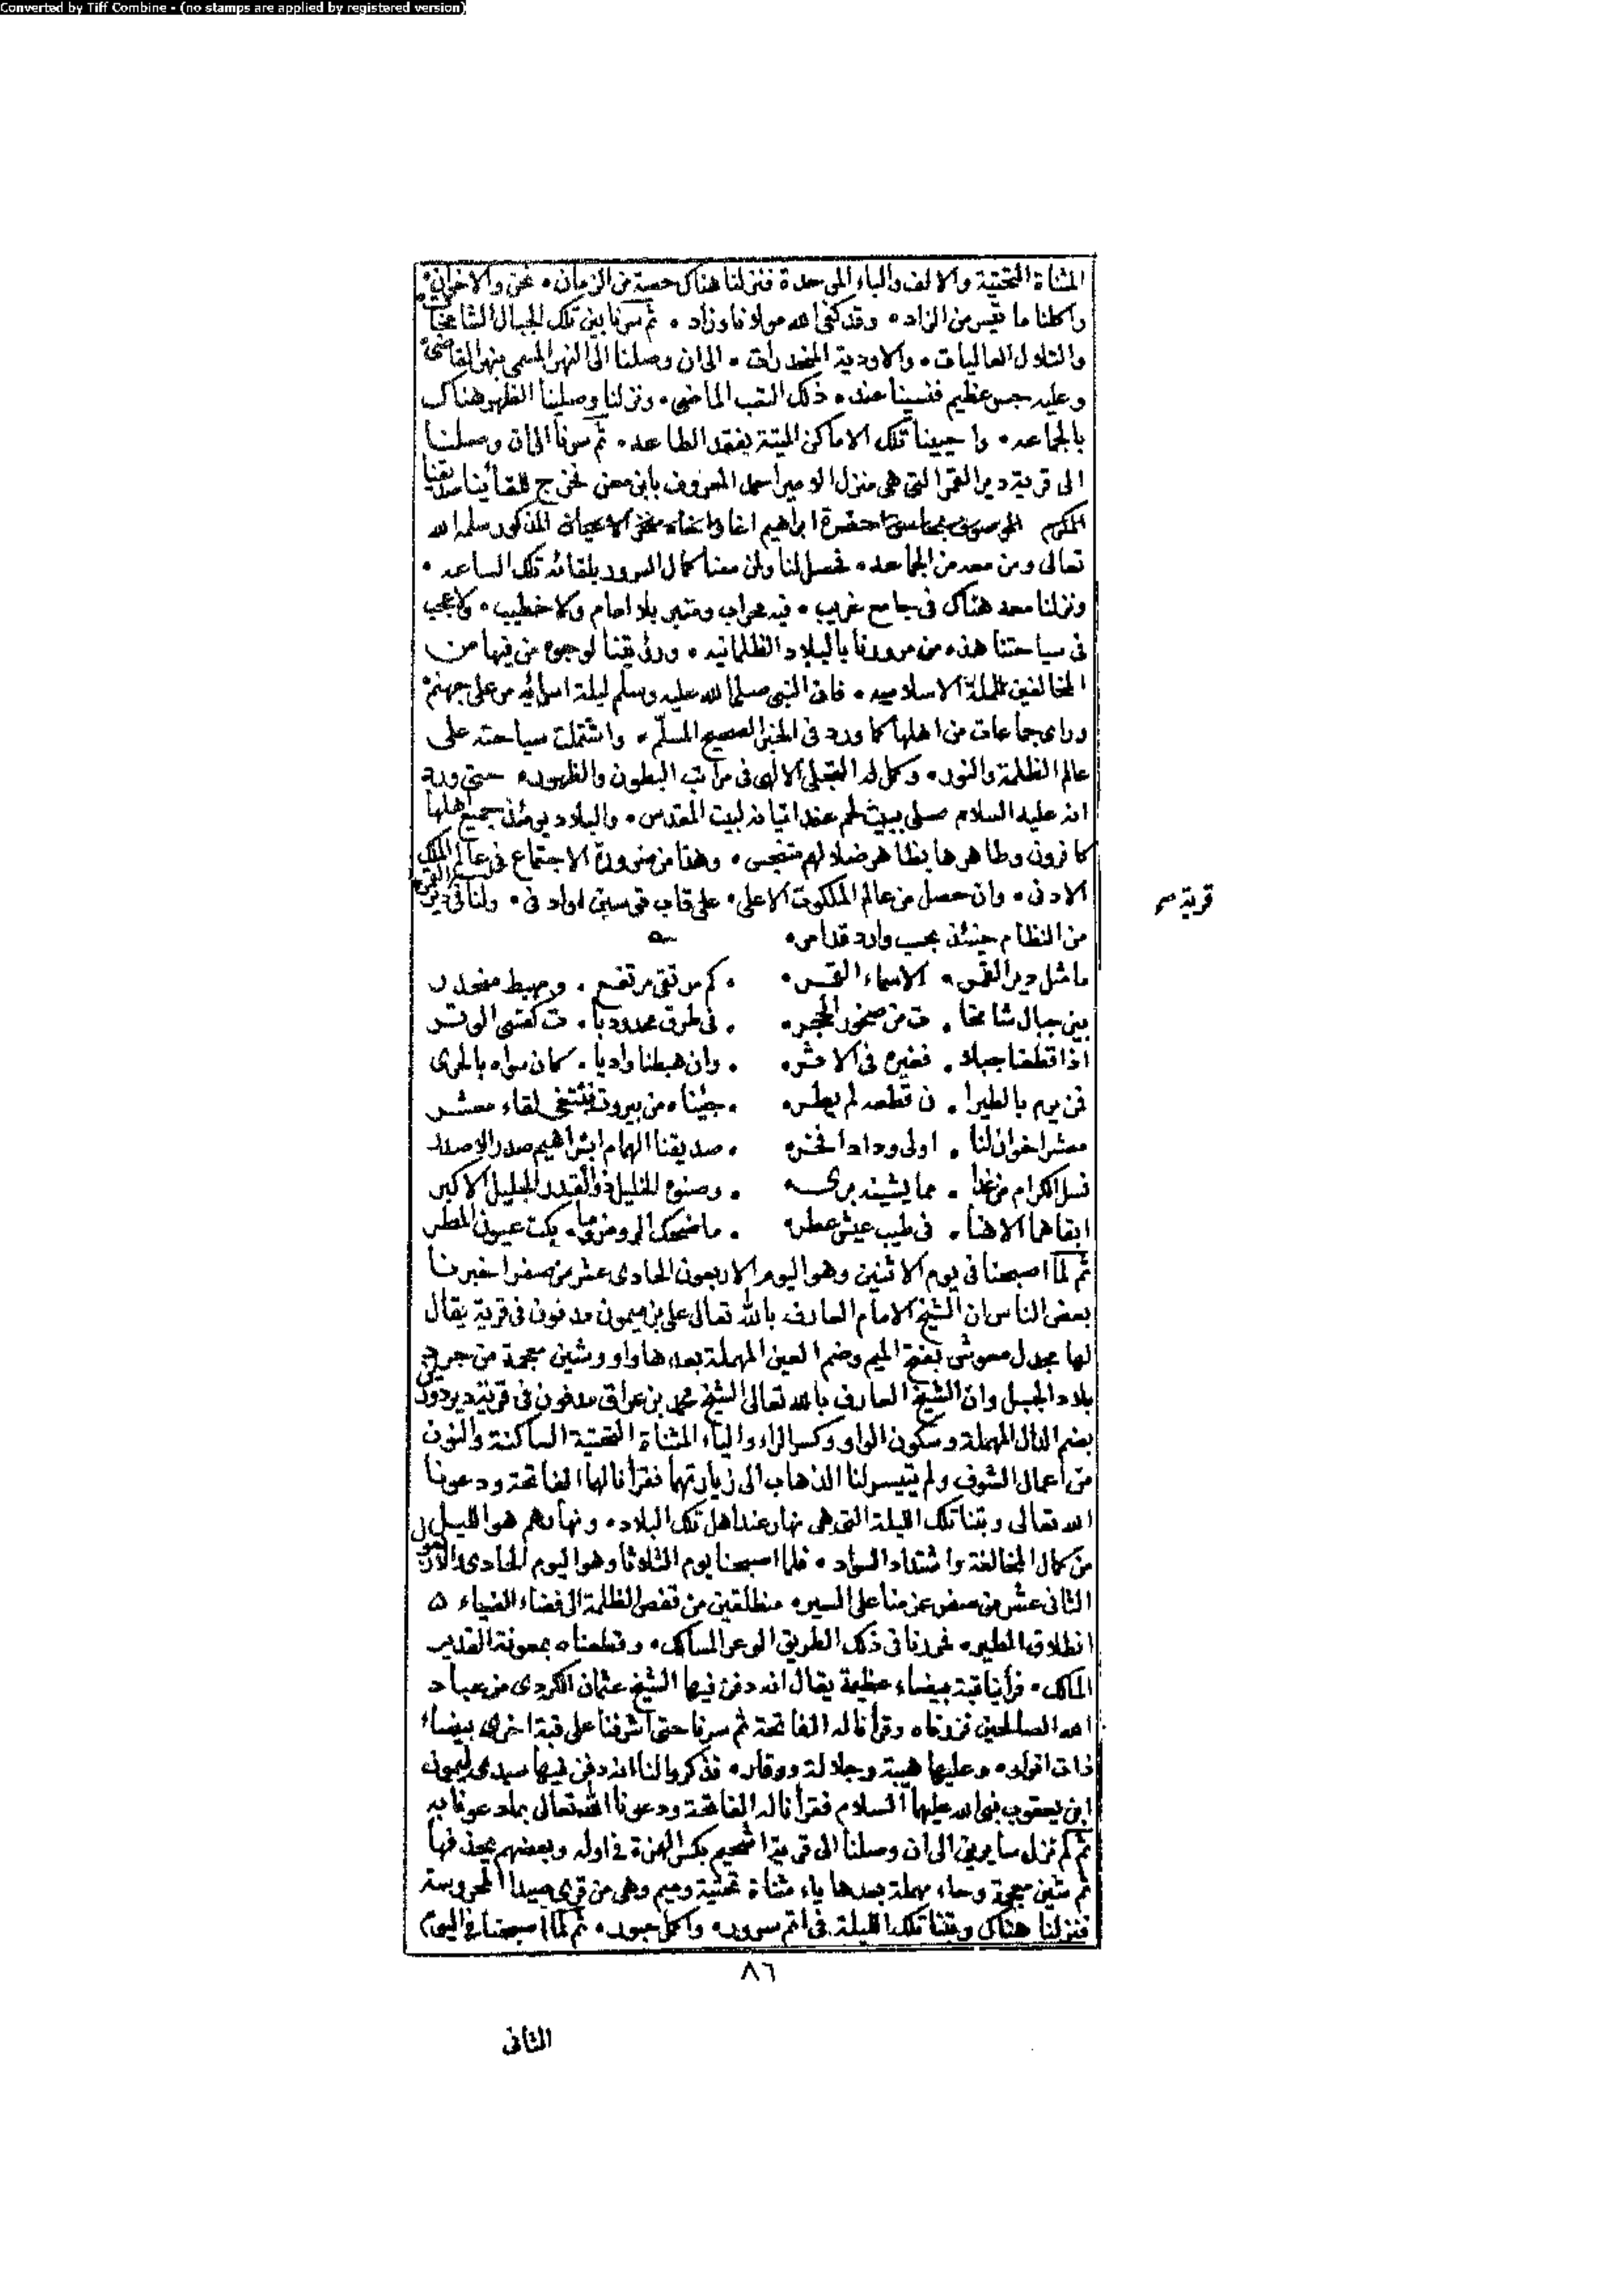 Converted by Tiff Combine - (no stamps are applied by registered version)
المثناة التحتية والالف والباء الموحدة فنزلنا هناك حصة من الزمان • نحن والاخوان
واكلنا ما تيسر من الزاد • وقد كفى الله مولانا وزاد • ثم سرنا بين تلك الجبال الشامخات
والتلول العاليات • والاودية المنحدرات • الى ان وصلنا الى النهر المسمى بنهر القاضى
وعليه جسر عظيم فنسينا عنده ذلك التعب الماضى • ونزلنا وصلينا الظهر هناك
بالجماعه • واحيينا تلك الاماكن الميتة بفقد الطاعه • ثم سرنا الى ان وصلنا
الى قرية دير القمر التى هى منزل الامير احمد المعروف بابن معن فخرج للقائنا صديقنا
المكرم الموصوف حضرة ابراهيم اغا واخاه فخر الاعيان المذكور سلمه الله
تعالى ومن معه من الجماعه • فحصل لنا ولمن معنا كمال السرور بلقائه تلك الساعه •
ونزلنا معه هناك فى جامع غريب • فيه محراب ومنبر بلا امام ولا خطيب • ولا عجب
فى سياحتنا هذه من مرورنا بالبلاد الظلمانيه • ورؤيتنا لوجوه من فيها من
المخالفين للملة الاسلاميه • فان النبى صلى الله عليه وسلم ليلة اسرائه مر على جهنم
وراى جماعات من اهلها كما ورد فى الخبر الصحيح المسلّم • واشتملت سياحته على
عالم الظلمة والنور • وكمل له التجلى الالهى فى مراتب البطون والظهور • حتى ورد
انه عليه السلام صلى ببيت لحم عند اتيانه لبيت المقدس • والبلاد يومئذ جميع اهلها
كافرون وطاهرها بظاهر ضلالهم متنجس • وهذا من ضرورة الاجتماع فى عالم الملك
الادنى • وان حصل من عالم الملكوت الاعلى • على قاب قوسين او ادنى • ولنا فى دير القمر
قرية
من النظام حينئذ بحسب وارد
ما مثل دير القمر • الا سماء القمر • كم مرتقى مرتفع • ومهبط منحدر
بين جبال شامخا • ت من صخور الحجر • فى طرق محدودبا • ت كقسى الوتر
اذا قطعنا جبلا • فغيره فى الاثر • وان هبطنا واديا • كان سواه بالحرى
فى يوم بالطيرا • ن قطعه لم يطر • جئناه من بيروت لقاء معشر
معشر اخوان لنا • اولى وداد • صديقنا الهمام ابراهيم صدر الاصدر
نسل الكرام من غدا • مما يشينه برى • وصنوه الخليل ذو القدر الجليل الاكبر
ابقاهما الاهنا • فى طيب عيش عطر • ما ضحك الروض وما • بكت عيون المطر
ثم لما اصبحنا فى يوم الاثنين وهو اليوم الاربعون الحادى عشر من صفر اخبرنا
بعض الناس ان الشيخ الامام العارف بالله تعالى على بن ميمون مدفون فى قرية يقال
لها مجدل معوش بفتح الميم وضم العين المهملة بعدها واو وشين معجمة من
بلاد الجبل وان الشيخ العارف بالله تعالى الشيخ محمد بن عراق مدفون فى قرية دير دورين
بضم الدال المهملة وسكون الواو وكسر الراء والياء المثناة التحتية الساكنة والنون
من اعمال الشوف ولم يتيسر لنا الذهاب الى زيارتهما فقرأنا لهما الفاتحة ودعونا
الله تعالى وبتنا تلك الليلة التى هى نهار عند اهل تلك البلاد • ونهارهم هو الليل
من كمال المخالفة واشتداد السواد • فلما اصبحنا يوم الثلاثا وهو اليوم الحادى والاربعون
الثانى عشر من صفر عزمنا على السير • منطلقين من قفص الظلمة الى فضاء الضياء
انطلاق الطير • فى ذلك الطريق الوعر المسالك • وقطعناه بمعونة القدير
المالك • فرأينا قبة بيضاء عظيمة يقال انه دفن فيها الشيخ عثمان الكردى من عباد
الله الصالحين فزرناه وقرأنا له الفاتحة ثم سرنا حتى اشرفنا على قبة اخرى بيضاء
ذات انوار • وعليها هيبة وجلالة ووقار • فذكروا لنا انه دفن فيها سيدى
ابن يعقوب نبى الله عليهما السلام فقرأنا له الفاتحة ودعونا الله تعالى بما دعونا به
ثم لم نزل سايرين الى ان وصلنا الى قرية اشحيم بكسر الهمزة فى اوله وبعضهم يحذفها
ثم شين معجمة وحاء مهملة بعدها ياء مثناة تحتية وميم وهى من قرى صيدا المحروسة
فنزلنا هناك وبتنا تلك الليلة فى اتم سرور • واكمل حبور • ثم لما اصبحنا فى اليوم
٨٦
الثانى